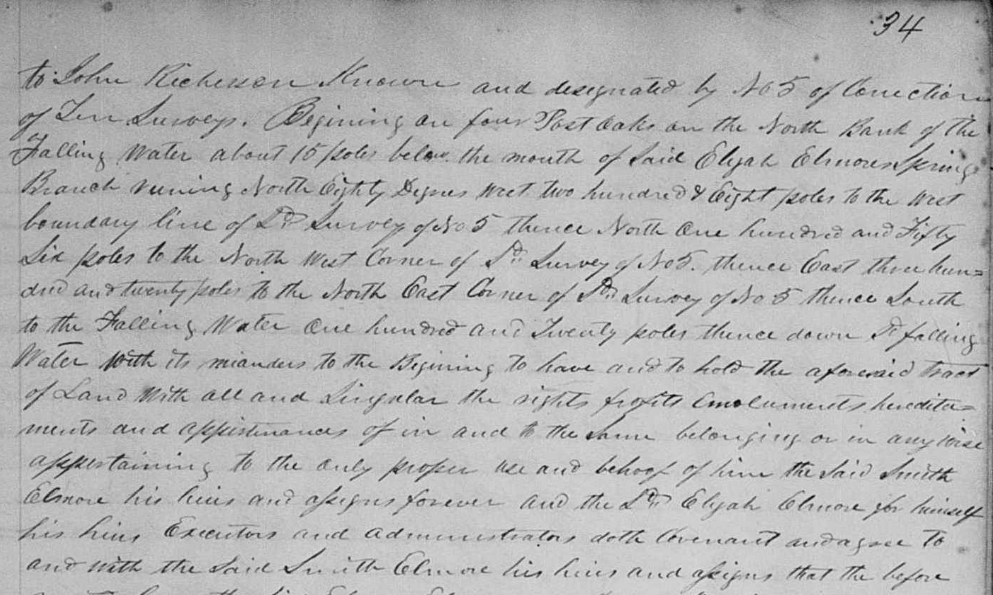 34
to John Richerson Known and designated by No 5 of Conection
of Ten Surveys. Begining on four Post Oaks on the North Bank of the
Falling Water about 15 poles below the mouth of Said Elijah Elmores Spring
Branch runing North Eighty Degrees West two hundred & Eight poles to the West
boundary line of Sd Survey of No 5 thence North One hundred and Fifty
Six poles to the North West Corner of Sd Survey of No 5. thence East three hun=
dred and twenty poles to the North East Corner of Sd Survey of No 5 thence South
to the Falling Water One hundred and Twenty poles thence down Sd falling
Water with its mianders to the Begining to have and to hold the aforesaid tract
of Land With all and Singular the rights profits Emoluments heredita=
ments and appurtenances of in and to the Same belonging or in any wise
appertaining to the only proper use and behoof of him the Said Smith
Elmore his heirs and assigns forever and the Sd Elijah Elmore for himself
his heirs Executors and administrators doth Covenant and agree to
and with the Said Smith Elmore his heirs and assigns that the before